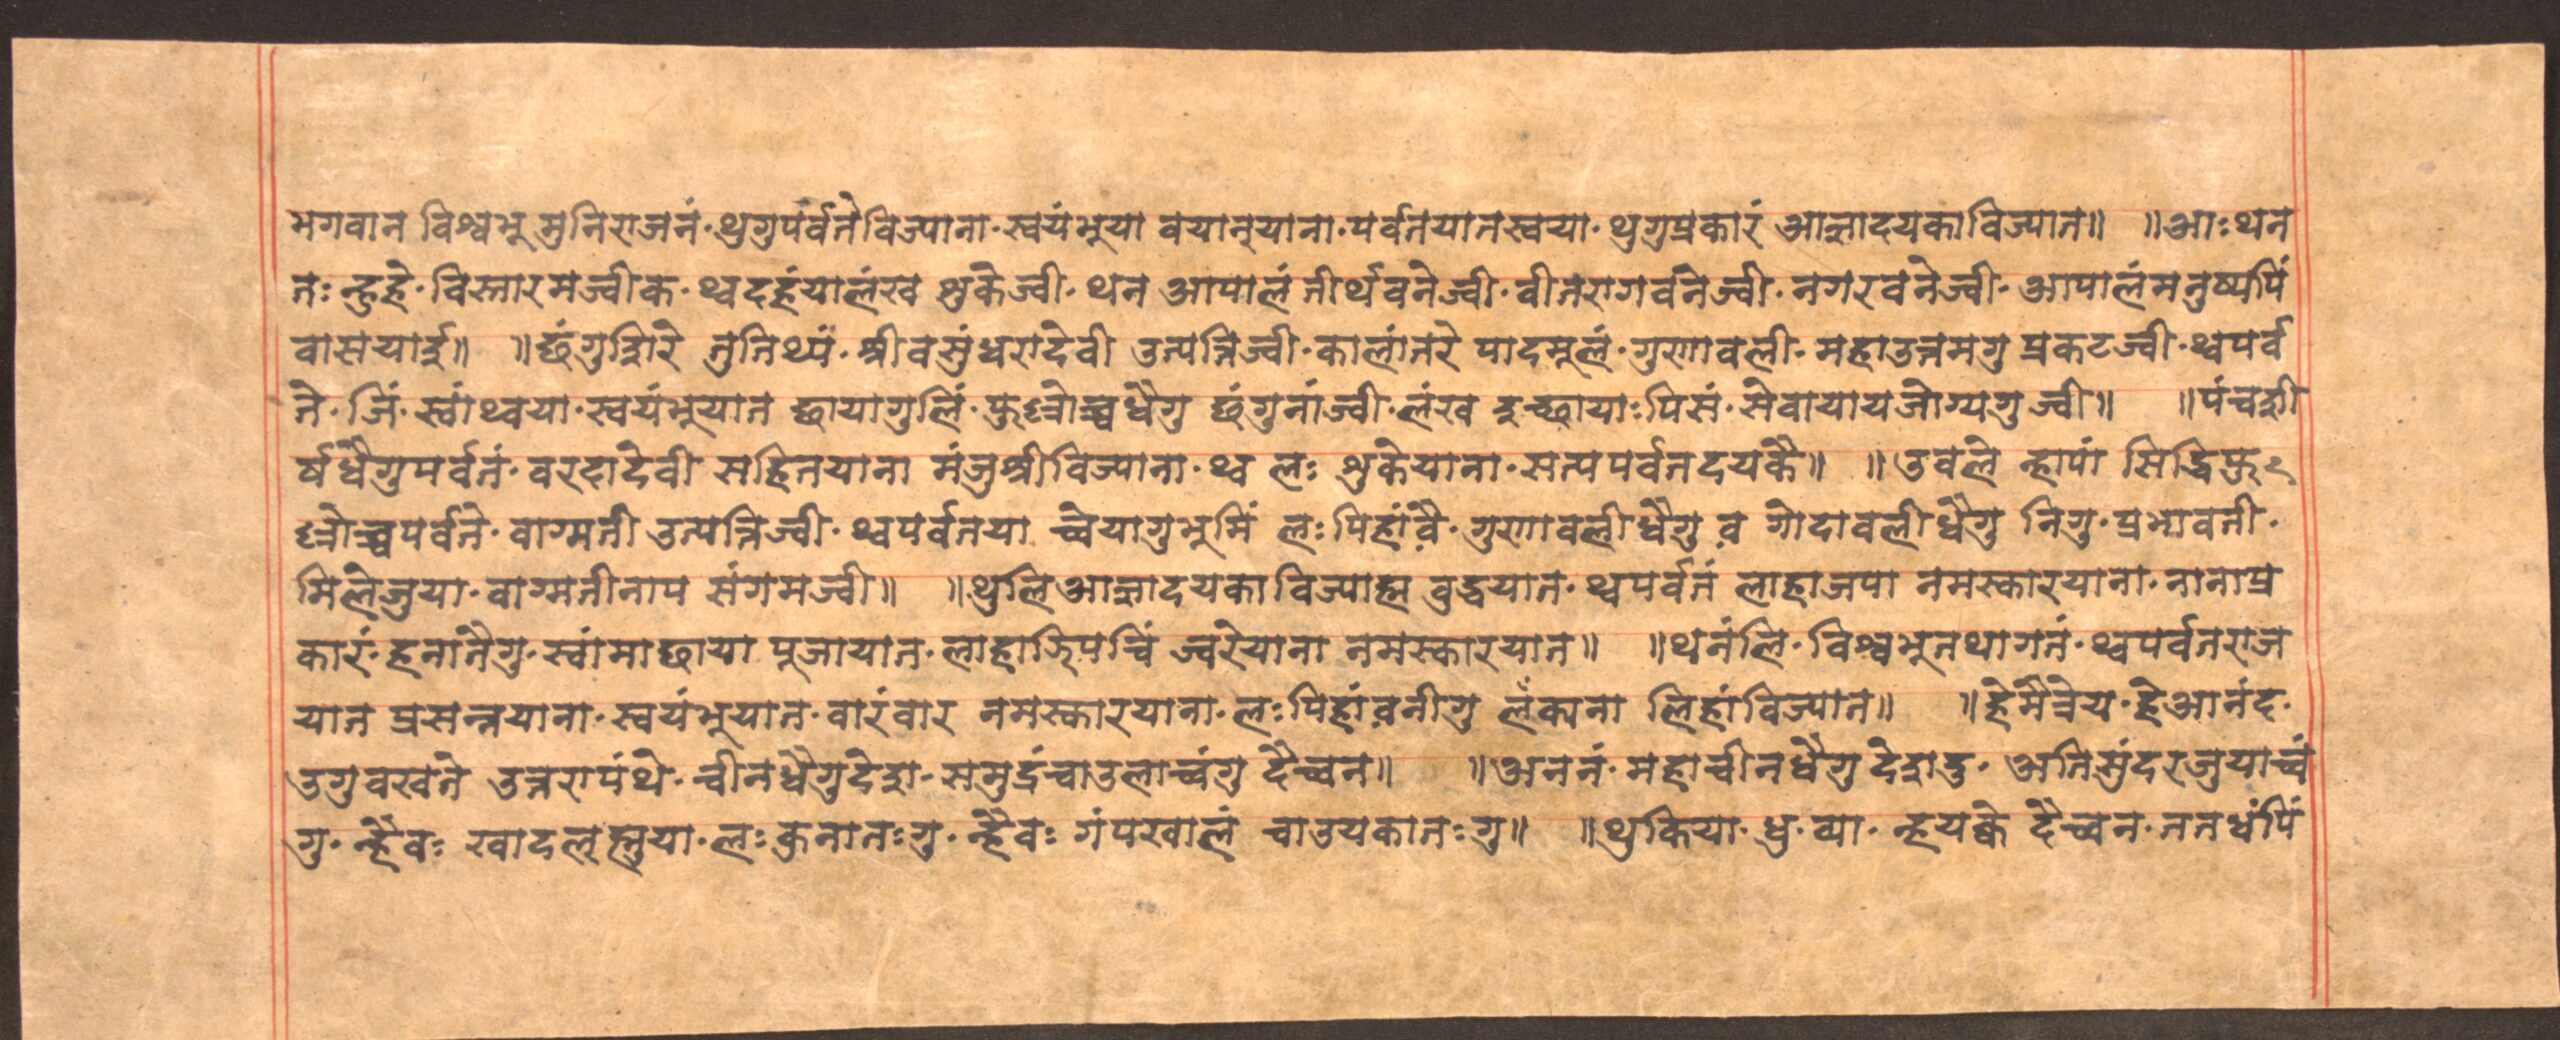 भगवान विश्वभु मुनिराजनं· थुगुपंर्वतनैविज्याना· स्वयंभूया वयान्याना· पर्वतयातस्वया· थुगुप्रकारं आज्ञादयकाविज्यात॥ ॥आः थन
तः न्हुहे· विस्तारमज्वीक· थ्वदहंयालंख शुकेज्वी· थन आपालं तीर्थवनेज्वी· वीतरागवनेज्वी· नगरवनेज्वी· आपालंमनुष्यपिं
वासयाई॥ ॥छंगुद्धिारे तुनिथ्यं· श्रीवसुंधरादेवी उत्पन्निज्वी· कालांतरे पादमूलं· गुणावली· महाउत्तमगु प्रकटज्वी· थ्वपर्व
ते· जिं· स्वांथ्वया· स्वयंभूयात छायागुलिं· फुल्चोच्वधैगु छंगुनांज्वी· लंख दुच्छायाःपिसं· सेवायायजोग्यगुज्वी॥ ॥पंचशी
र्षधैगुपर्वतं· वरदादेवी सहितयाना मंजुश्रीविज्याना· थ्व लः शुकेयाना· सत्यपर्वतदयकै॥ ॥उवले न्हापां सिद्धिफु
ल्चोच्वपर्वते· वाग्मती उत्पन्निज्वी· थ्वपर्वतया च्वेयागुभूमिं लःपिहांवै· गुणावलीधैगु व गोदावलीधैगु निगु· प्रभावती·
मिलेजुया· वाग्मतीनाप संगमज्वी॥ ॥थुलिआज्ञादयकाविज्याह्म बुद्धयात· थ्वपर्वतं लाहाजपा नमस्कारयाना· नानाप्र
कारं· हनातैगु· स्वांमाछाया पूजायात· लाहाज्पिच्विं ज्वरेयाना नमस्कारयात॥ ॥थनंलि· विश्वभूतथागतं· थ्वपर्वतराज
यात प्रसन्नयाना· स्वयंभूयात· वारंवार नमस्कारयाना· लःपिहांवनीगु लंक्यना लिहांविज्यात॥ ॥हेमैत्रेय· हेआनंद·
उगुवखते उत्तरापंथे· चीनधैगुदेश· समुद्रंचाउलाच्वंगु दैच्वन॥ ॥अननं· महाचीनधैगु देशदु· अतिसुंदरजुयाच्वं
गु· न्हैवः खादलह्मुया· लः क्रनातःगु· न्हैवः गंपखालं चाउयकातःगु॥ ॥थुकिया· ध्रु· व्या· न्हयक्वे दैच्वन· ननधंपिं